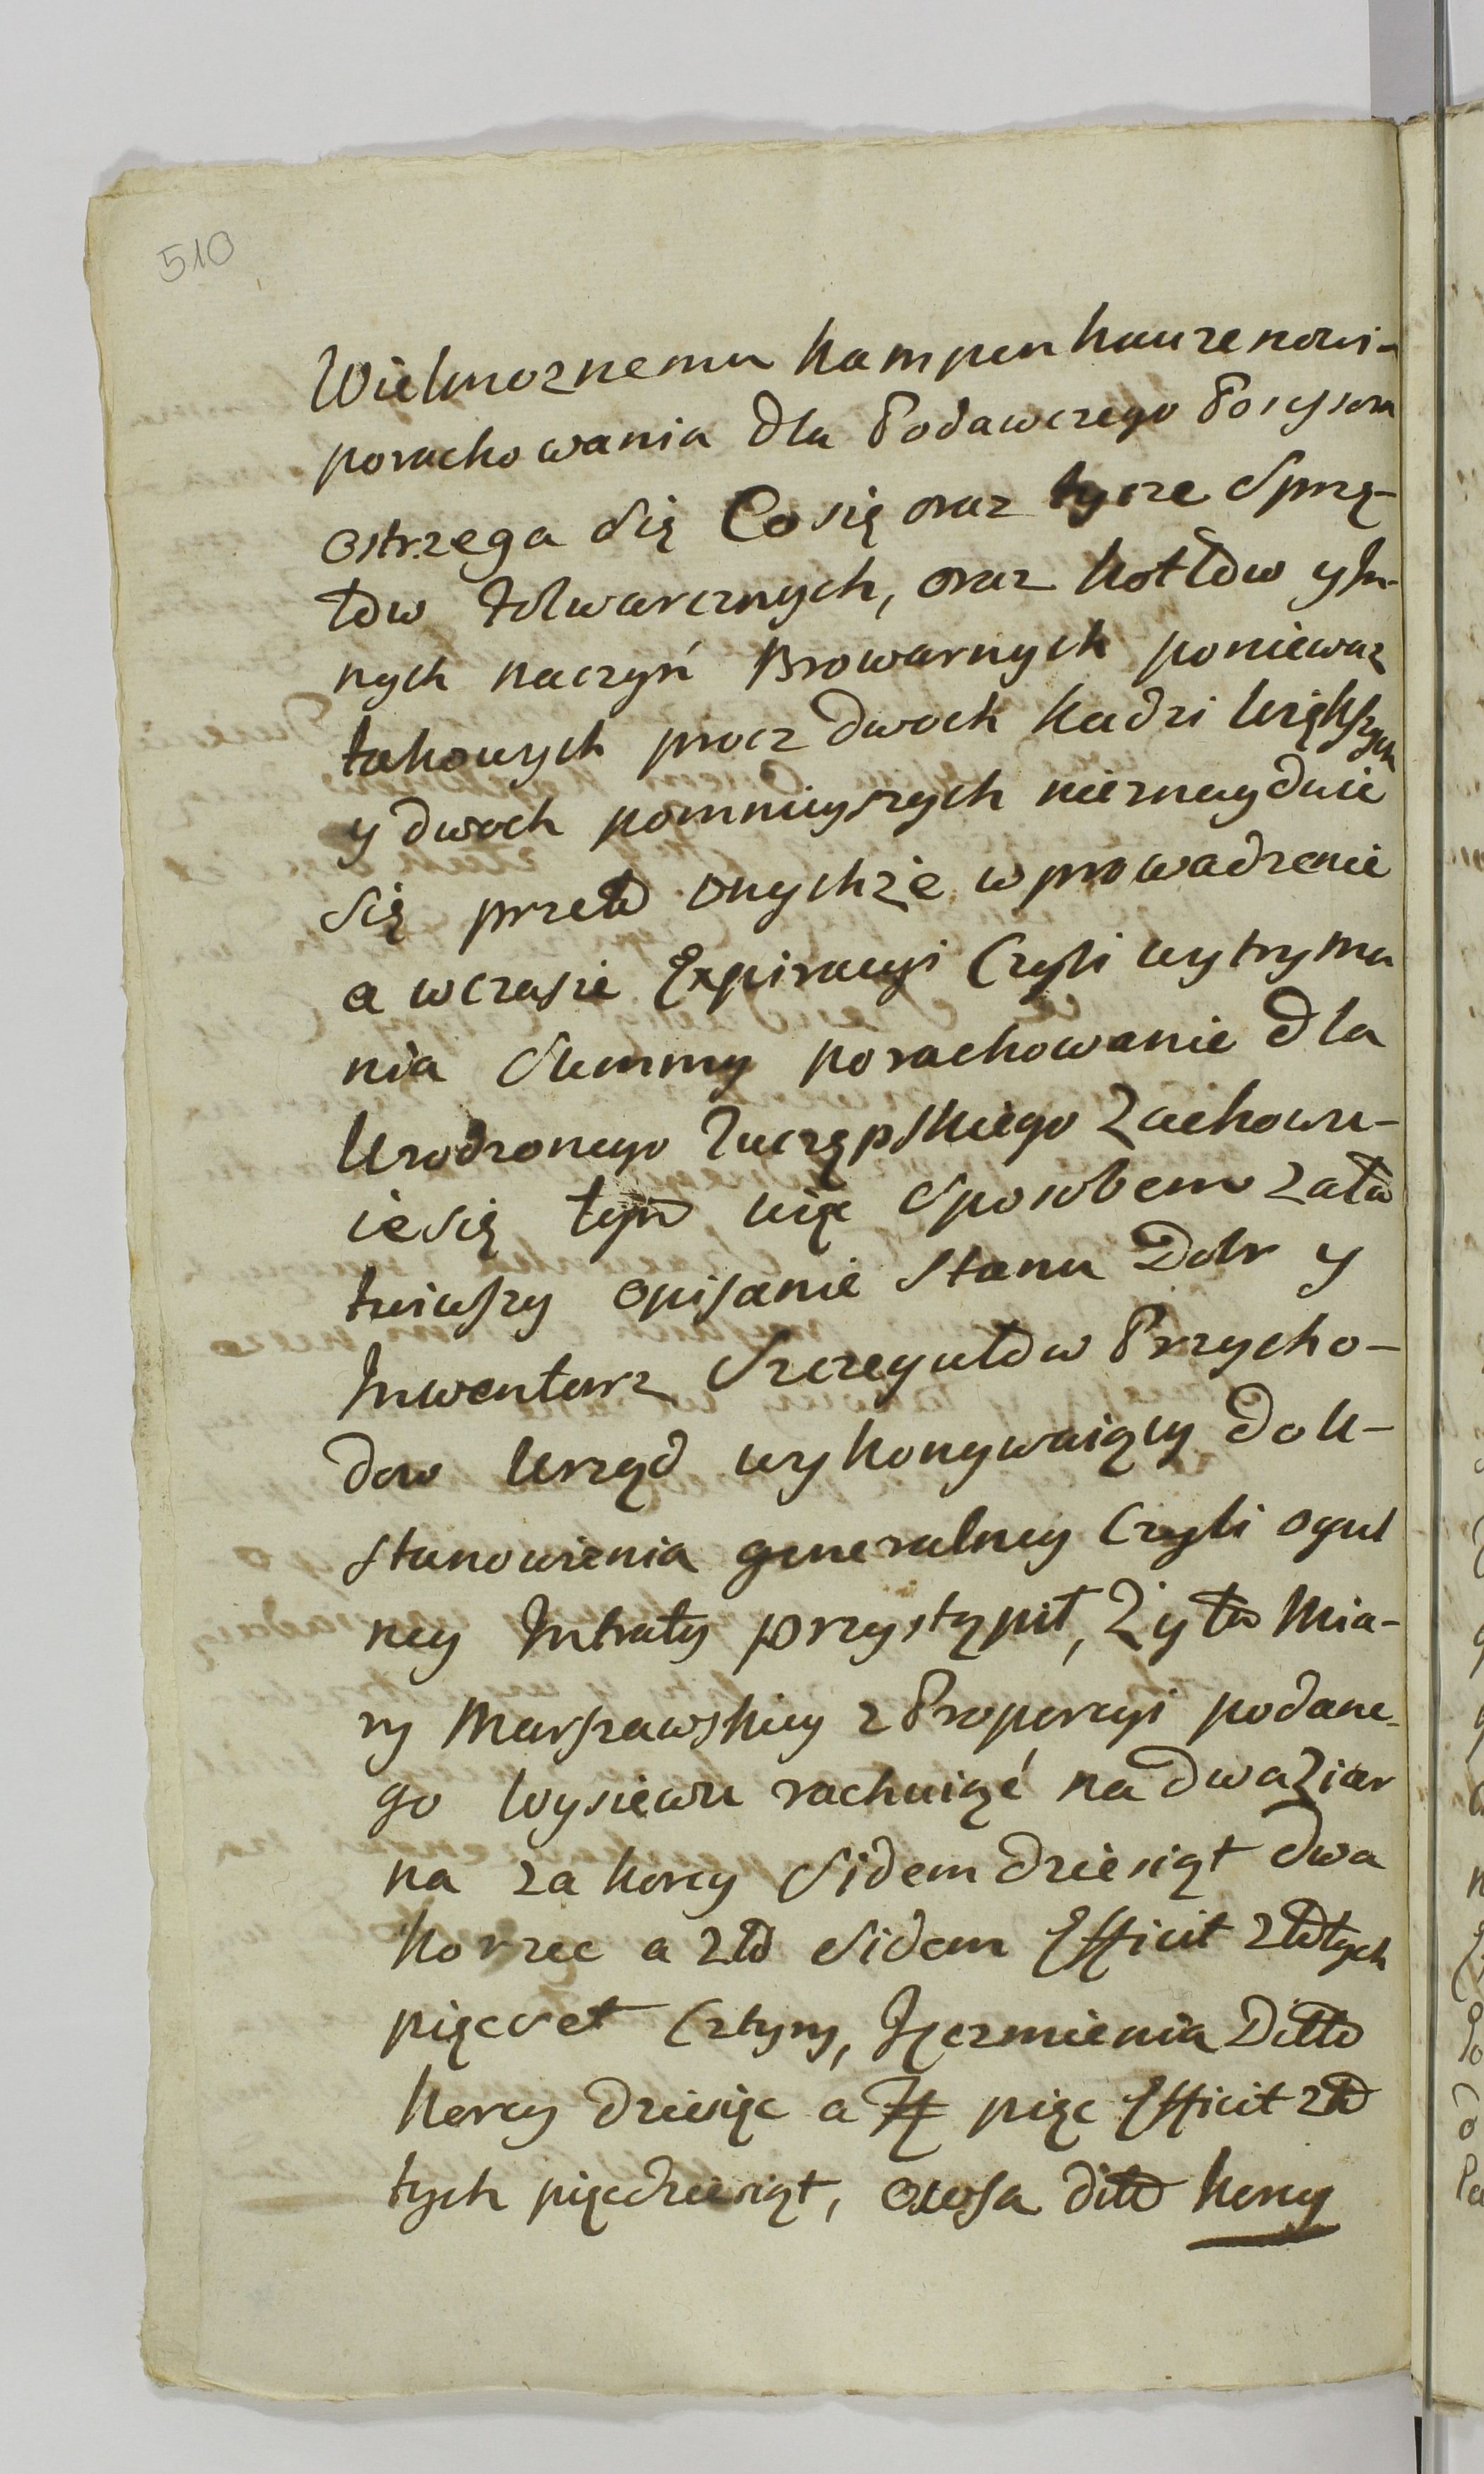 510
Wielmoznemu Kampenhauzenowi-
porachowania dla Podawczego Possysora
ostrzega się Co się oraz tycze Sprzę-
tow folwarcznych, oraz Kotłow y In-
nych naczyń Browarnych poniewaz
takowych procz dwoch Kadzi większych
y dwoch pomnieyszych nieznayduie
się przeto onychże wprowadzenie
a wczasie Expiracyi Czyli wytrzyma
nia Summy porachowanie dla
Urodzonego Zachowu-
ie się tym więc sposobem zała
twiwszy opisanie Stanu Dobr y
Inwentarz Szczegułow Przycho-
dow Urząd wykonywaiący do U-
stanowienia generalney Czyli ogul
ney Intraty przystąpił, Żyta Mia-
ry Warszawskiey z Proporcyi podane-
go Wysiewu rachuiąć na dwa Ziar
na za korcy Sidem dziesiąt dwa
Korzec a zło Sidem Efficit złotych
pięcset Cztyry, Jęczmienia Ditto
korcy dziesięc a zł pięc Efficit zło
tych pięcdziesiąt, owsa ditto korcy